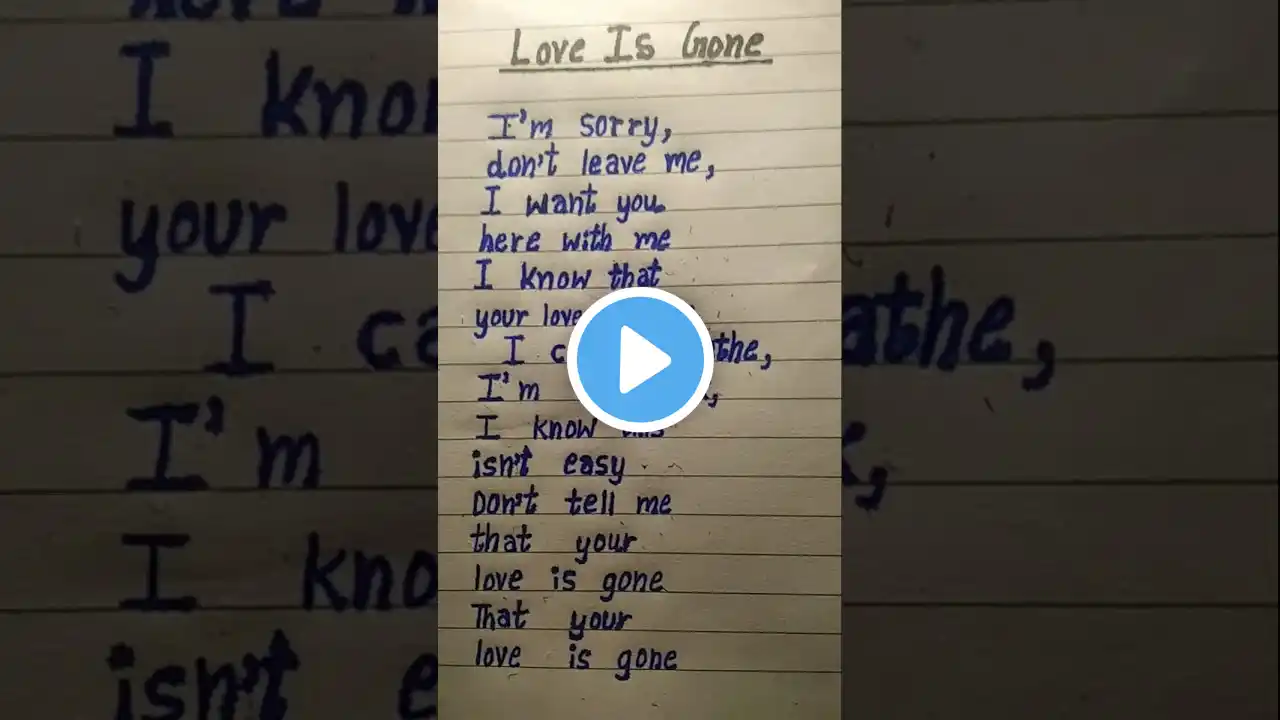 Love Is Gone
I'm sorry,
don't leave me,
I want you
here with me
I know that
your love
I
I'm
I know
isn't easy
Don't tell me
that your
love is gone
That your
love is gone